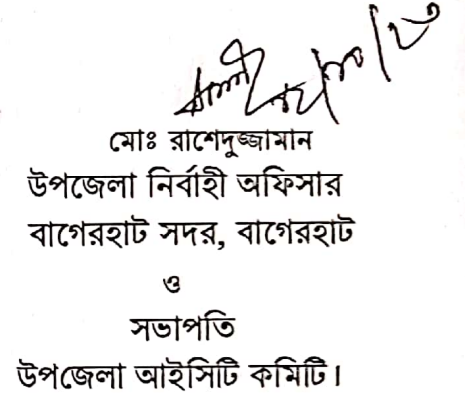 মোঃ রাশেদুজ্জামান
উপজেলা নির্বাহী অফিসার
বাগেরহাট সদর, বাগেরহাট
ও
সভাপতি
উপজেলা আইসিটি কমিটি।